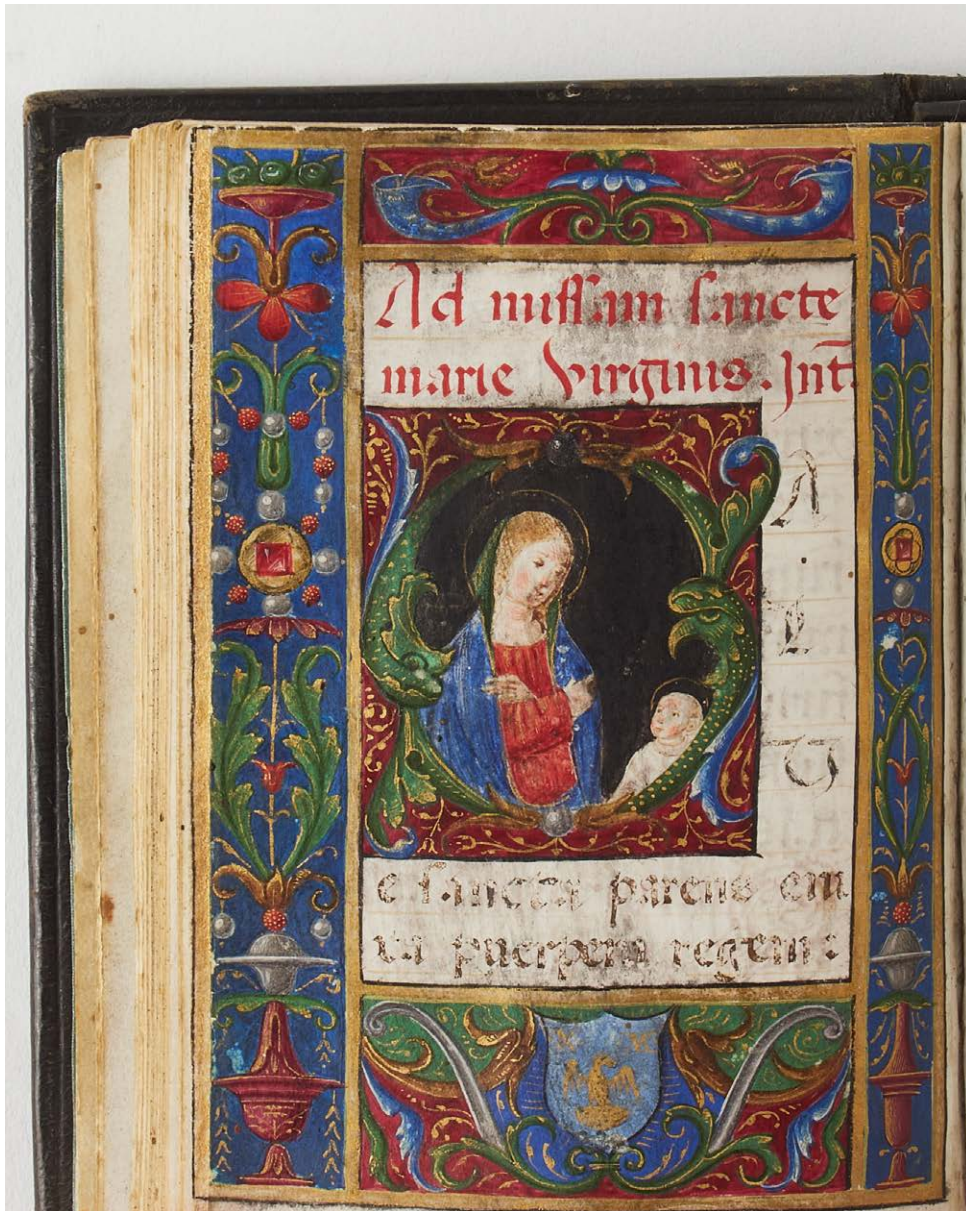 Ad missam sancte
marie Virginis. Int̄.
S A
L
V
e sancta parens eni
xa puerpera regem: